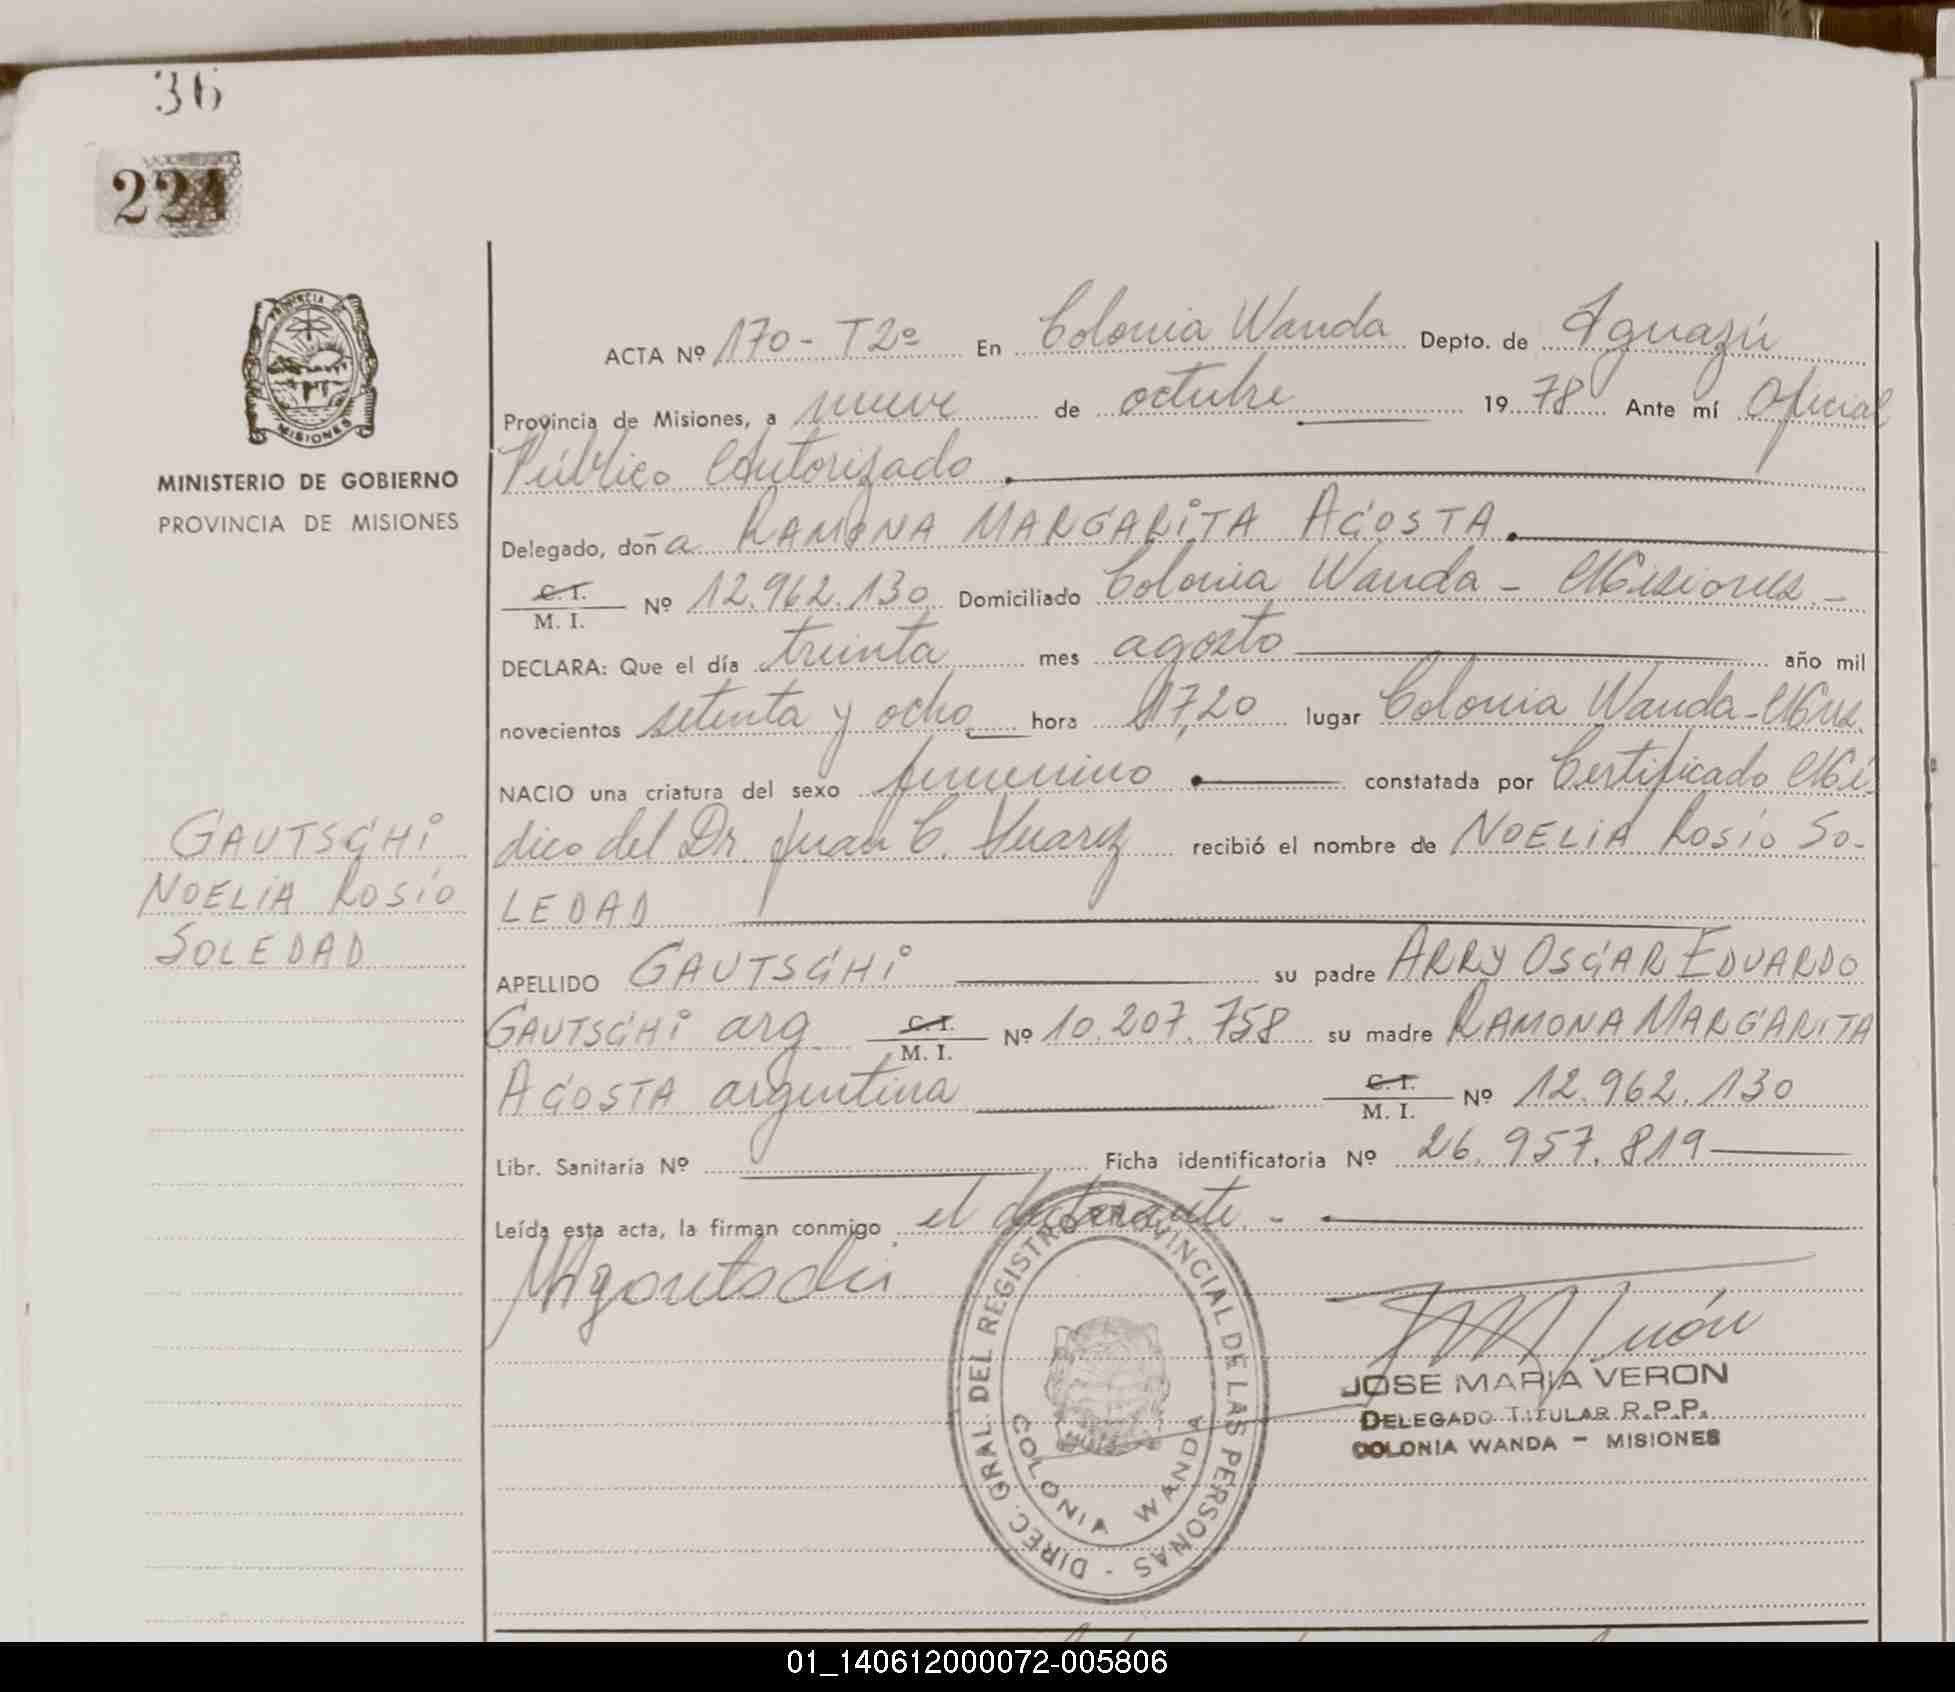 36
224
PROVINCIA DE
MISIONES
MINISTERIO DE GOBIERNO
PROVINCIA DE MISIONES
GAUTSCHI
NOELIA ROSIO
SOLEDAD
ACTA Nº 170 - T2º En Colonia Wanda Depto. de Iguazú
Provincia de Misiones, a nueve de octubre 1978 Ante mí Oficial
Público Autorizado
Delegado, doña RAMONA MARGARITA ACOSTA
C.I. / M. I. Nº 12.962.130 Domiciliado Colonia Wanda - Misiones -
DECLARA: Que el día treinta mes agosto año mil
novecientos setenta y ocho hora 17,20 lugar Colonia Wanda - Mnes.
NACIO una criatura del sexo femenino constatada por Certificado Mé-
dico del Dr. Juan C. Suarez recibió el nombre de NOELIA ROSIO SO-
LEDAD
APELLIDO GAUTSCHI su padre ARRY OSCAR EDUARDO
GAUTSCHI arg C.I. / M. I. Nº 10.207.758 su madre RAMONA MARGARITA
ACOSTA argentina C.I. / M. I. Nº 12.962.130
Libr. Sanitaría Nº Ficha identificatoria Nº 26.957.819
Leída esta acta, la firman conmigo el declarante. -
DIREC. GRAL. DEL REGISTRO PROVINCIAL DE LAS PERSONAS -
COLONIA WANDA
JOSE MARIA VERON
DELEGADO TITULAR R.P.P.
COLONIA WANDA - MISIONES
01_140612000072-005806